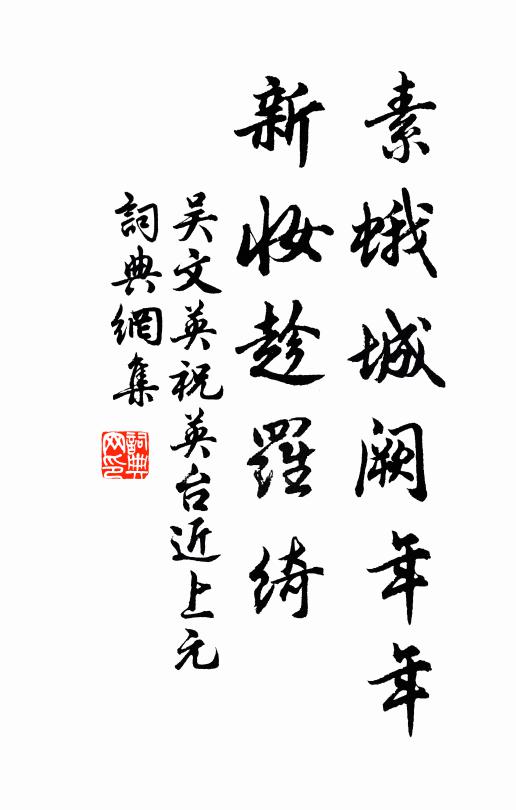 素蛾城阙年年
新妆趁羅綺
吴文英祝英台近上元
詞典網集
詞典网印